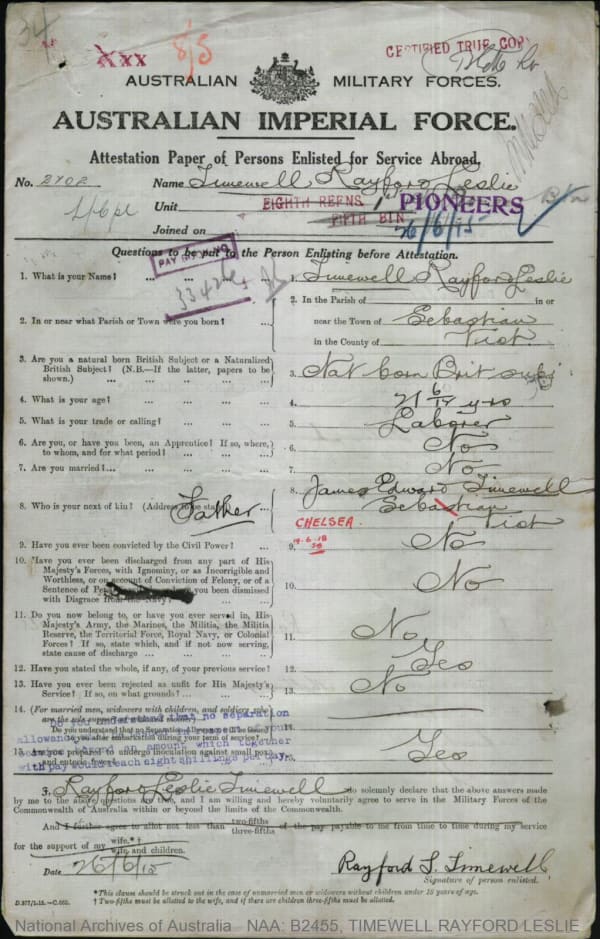 34
xxx
8/5
CERTIFIED TRUE COPY
AUSTRALIAN MILITARY FORCES.
AUSTRALIAN IMPERIAL FORCE.
Attestation Paper of Persons Enlisted for Service Abroad.
No. 2702 Name Timewell Rayford Leslie
Unit EIGHTH REFNS 1st PIONEERS
FIFTH BTN
Joined on 26/6/15
Questions to be put to the Person Enlisting before Attestation.
PAY
33426
1. What is your Name? 1. Timewell Rayford Leslie
2. In or near what Parish or Town were you born? 2. In the Parish of in or
near the Town of Sebastian
in the County of Vict
3. Are you a natural born British Subject or a Naturalized
British Subject? (N.B.—If the latter, papers to be
shown.) 3. Nat born Brit subj
4. What is your age? 4. 21 6/12 yrs
5. What is your trade or calling? 5. Laborer
6. Are you, or have you been, an Apprentice? If so, where,
to whom, and for what period? 6. No
7. Are you married? 7. No
8. Who is your next of kin? (Address to be stated) Father 8. James Edward Timewell
Sebastian
Vict
CHELSEA.
19.6.18
9. Have you ever been convicted by the Civil Power? 9. No
10. Have you ever been discharged from any part of His
Majesty's Forces, with Ignominy, or as Incorrigible and
Worthless, or on account of Conviction of Felony, or of a
Sentence of Penal you been dismissed
with Disgrace from the Navy? 10. No
11. Do you now belong to, or have you ever served in, His
Majesty's Army, the Marines, the Militia, the Militia
Reserve, the Territorial Force, Royal Navy, or Colonial
Forces? If so, state which, and if not now serving,
state cause of discharge 11. No
12. Have you stated the whole, if any, of your previous service? 12. Yes
13. Have you ever been rejected as unfit for His Majesty's
Service? If so, on what grounds? 13. No
14. (For married men, widowers with children, and soldiers who
are the sole support of widowed mother)
Do you understand that no separation
Do you understand that no Separation Allowance will be issued
allowance will be issued in respect of your
to you after embarkation during your term of service?
an amount which together
15. Are you prepared to undergo inoculation against small pox
and enteric fever? 15. Yes
with pay would reach eight shillings per day
I, Rayford Leslie Timewell do solemnly declare that the above answers made
by me to the above questions are true, and I am willing and hereby voluntarily agree to serve in the Military Forces of the
Commonwealth of Australia within or beyond the limits of the Commonwealth.
And I further agree to allot not less than two-fifths three-fifths of the pay payable to me from time to time during my service
for the support of my wife.*† wife and children.
Date 26/6/15
Rayford L. Timewell
Signature of person enlisted.
*This clause should be struck out in the case of unmarried men or widowers without children under 18 years of age.
† Two-fifths must be allotted to the wife, and if there are children three-fifths must be allotted.
D.377/1.15.—C.605.
National Archives of Australia NAA: B2455, TIMEWELL RAYFORD LESLIE